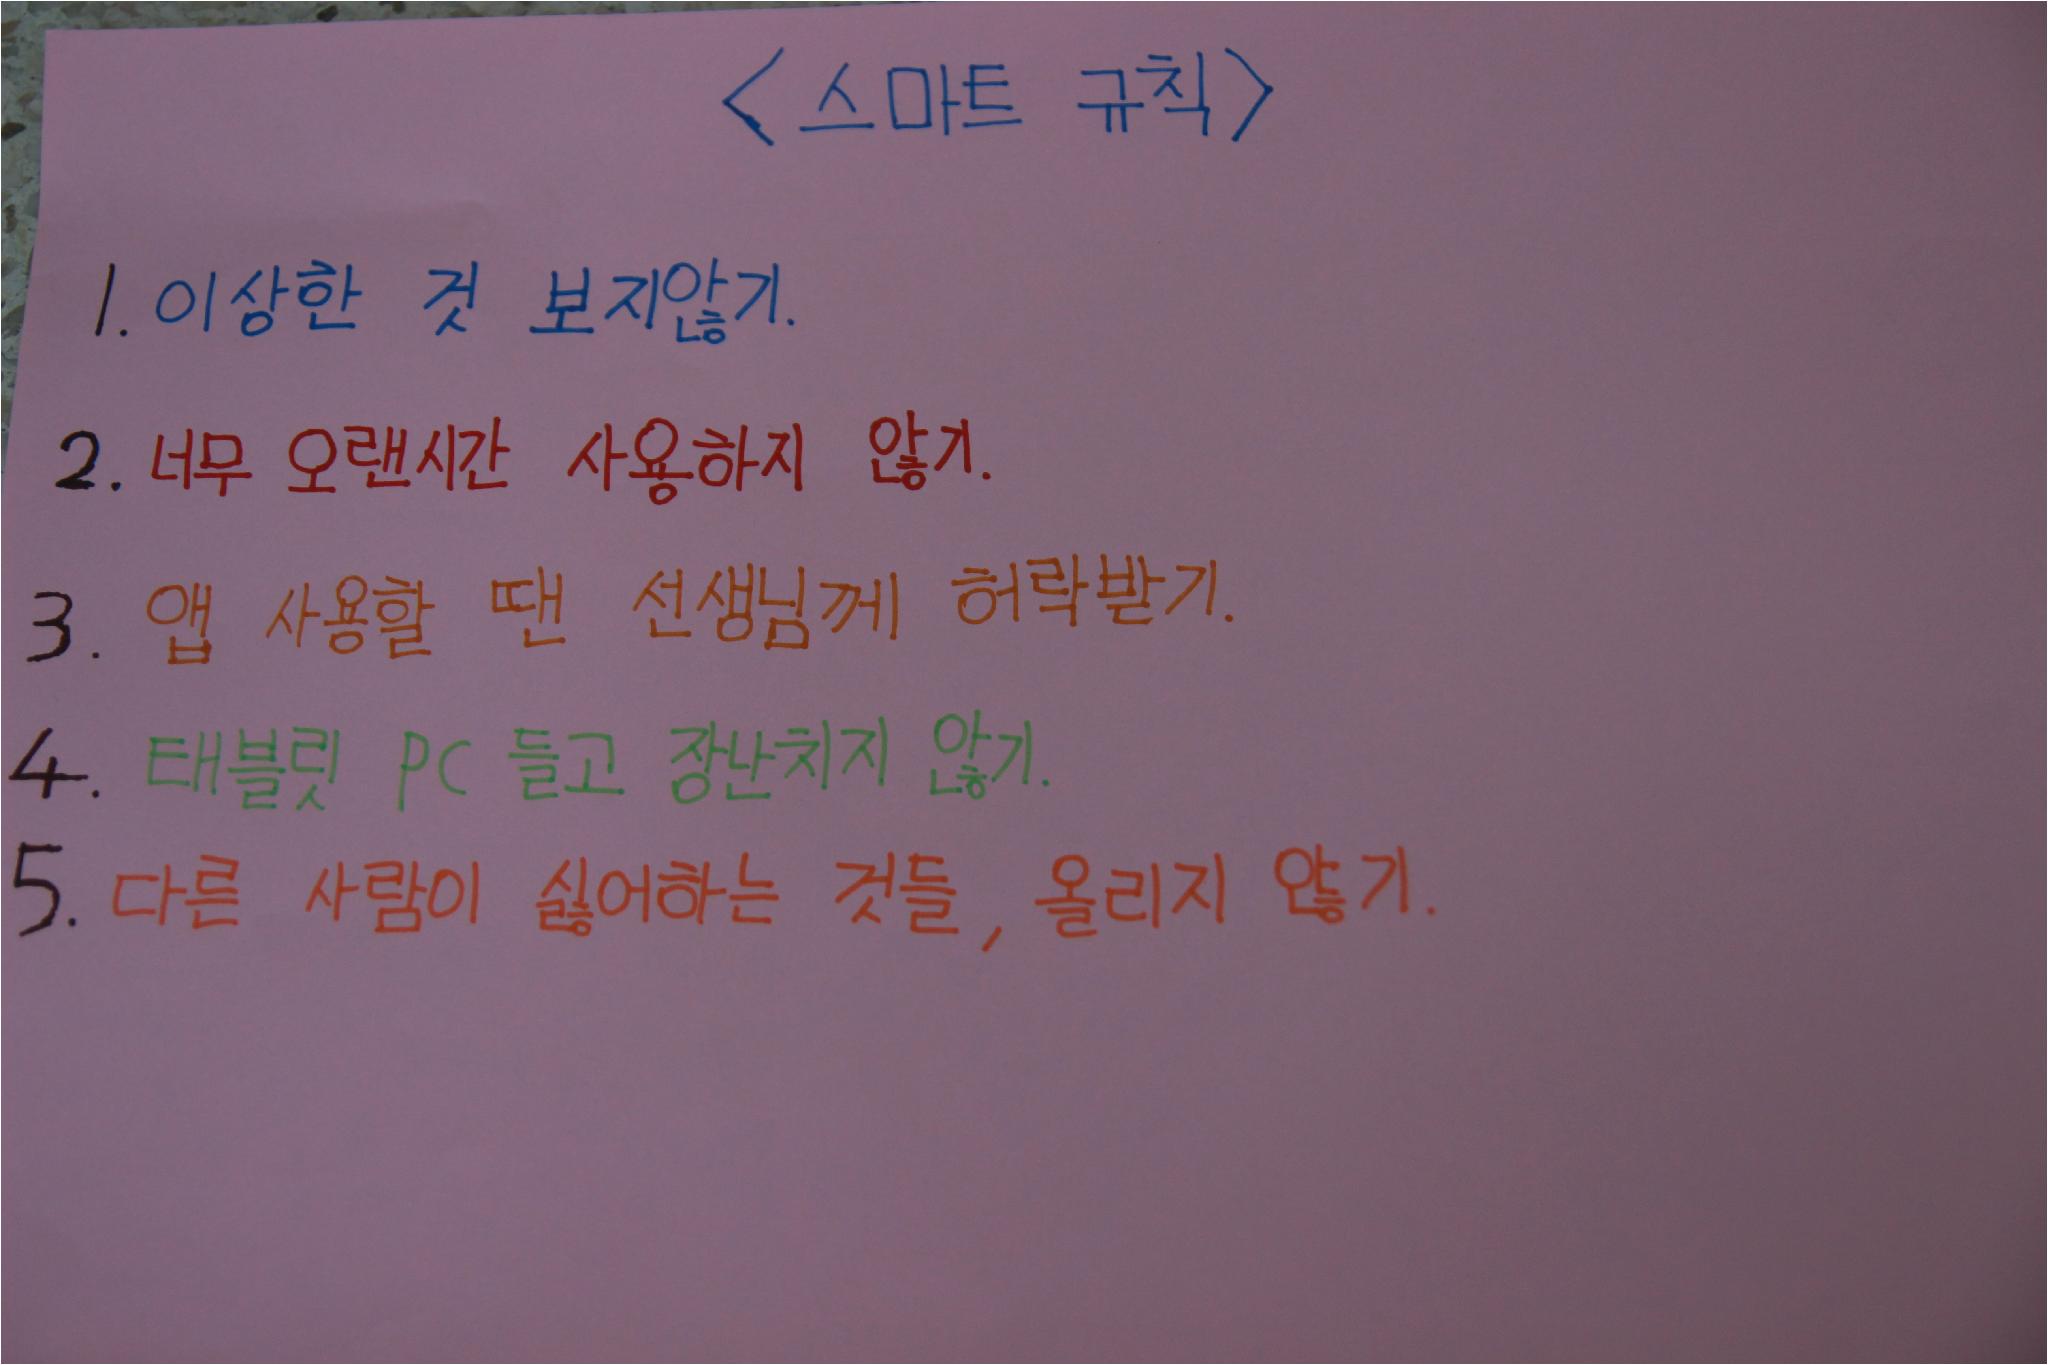 <스마트 규칙>
1. 이상한 것 보지않기.
2. 너무 오랜시간 사용하지 않기.
3. 앱 사용할 땐 선생님께 허락받기.
4. 태블릿 PC 들고 장난치지 않기.
5. 다른 사람이 싫어하는 것들, 올리지 않기.